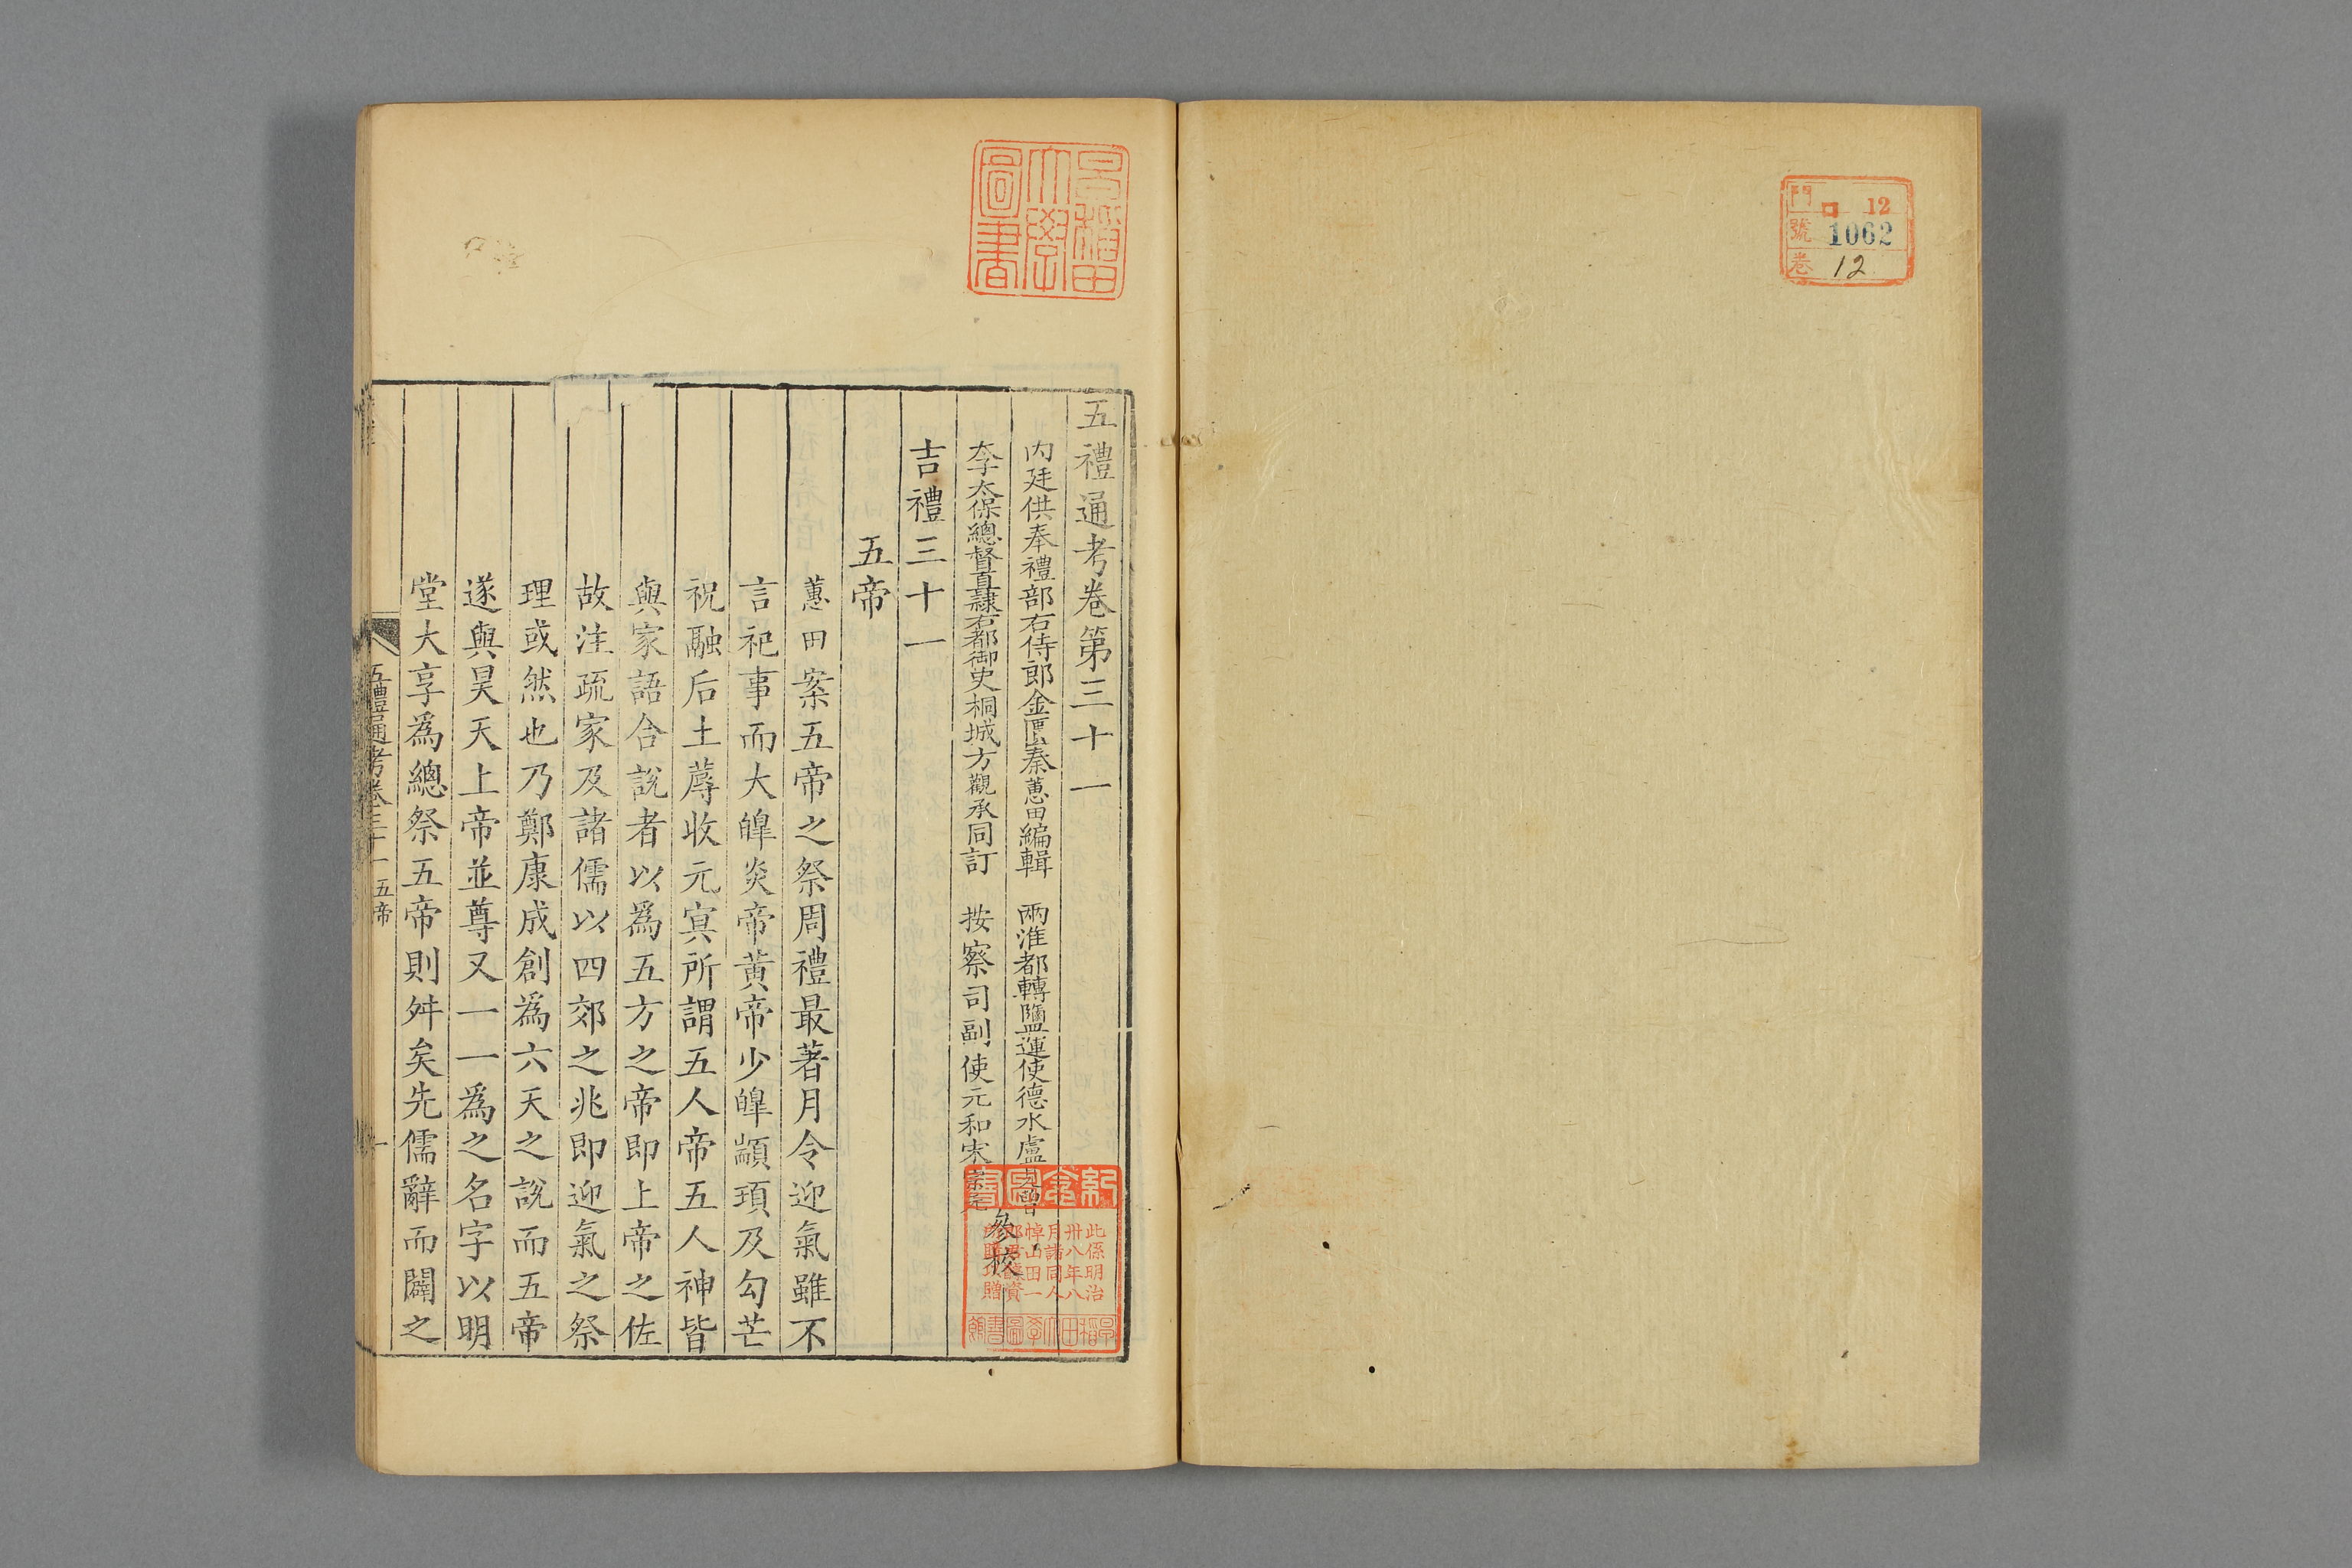 門 ロ 12
號 1062
卷 12
早稲田大學圖書
五禮通考卷第三十一
内廷供奉禮部右侍郎金匱秦蕙田編輯 兩淮都轉鹽運使德水盧見曾
李太保總督直隸右都御史桐城方觀承同訂 按察司副使元和宋宗元
參校
吉禮三十一
五帝
蕙田案五帝之祭周禮最著月令迎氣雖不
言祀事而大皥炎帝黃帝少皥顓頊及勾芒
祝融后土蓐收元冥所謂五人帝五人神皆
與家語合說者以爲五方之帝即上帝之佐
故注疏家及諸儒以四郊之兆即迎氣之祭
理或然也乃鄭康成創爲六天之說而五帝
遂與昊天上帝並尊又一一爲之名字以明
堂大享爲總祭五帝則舛矣先儒辭而闢之
五禮通考卷三十一 五帝 一
紀念圖書
此係明治
卅八年八
月諸同人
悼山田一
郎君醵資
所購以贈
早稲田大學圖書館